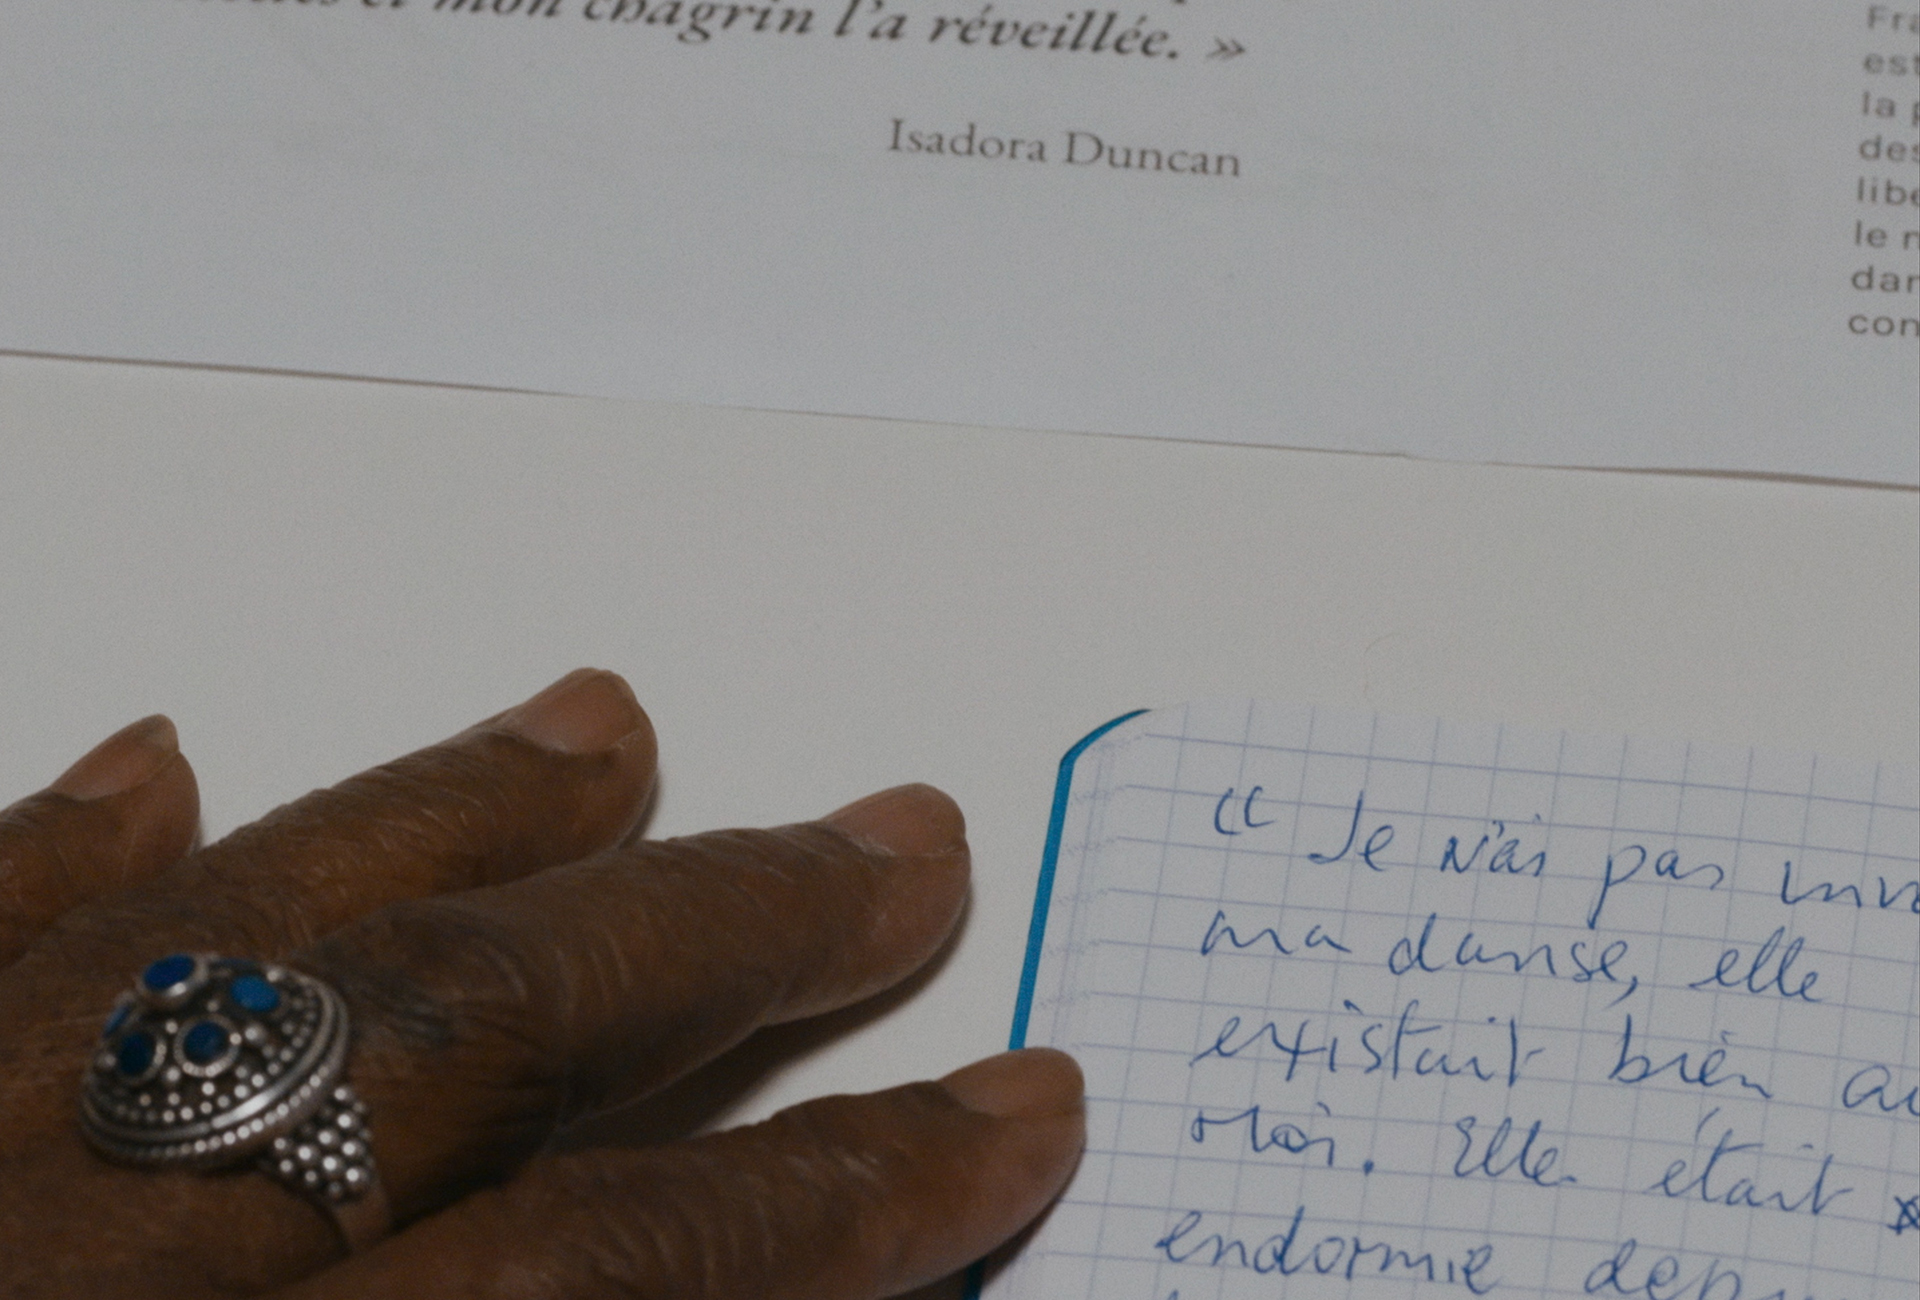 et mon chagrin l'a réveillée. »
Isadora Duncan
Fra
est
la p
des
libe
le n
dan
con
« Je n'ai pas inv
ma danse, elle
existait bien av
Moi. Elle était
endormie depu